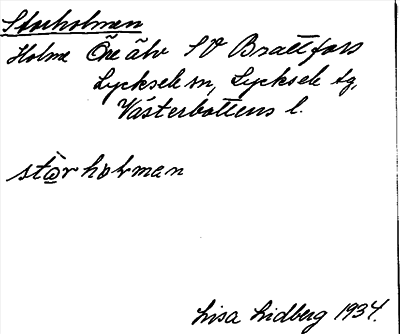 Storholmen
Holme Öre älv SV Brattfors
Lycksele sn, Lycksele tg,
Västerbottens l.
stò̱rhòlman
Lisa Lidberg 1934.